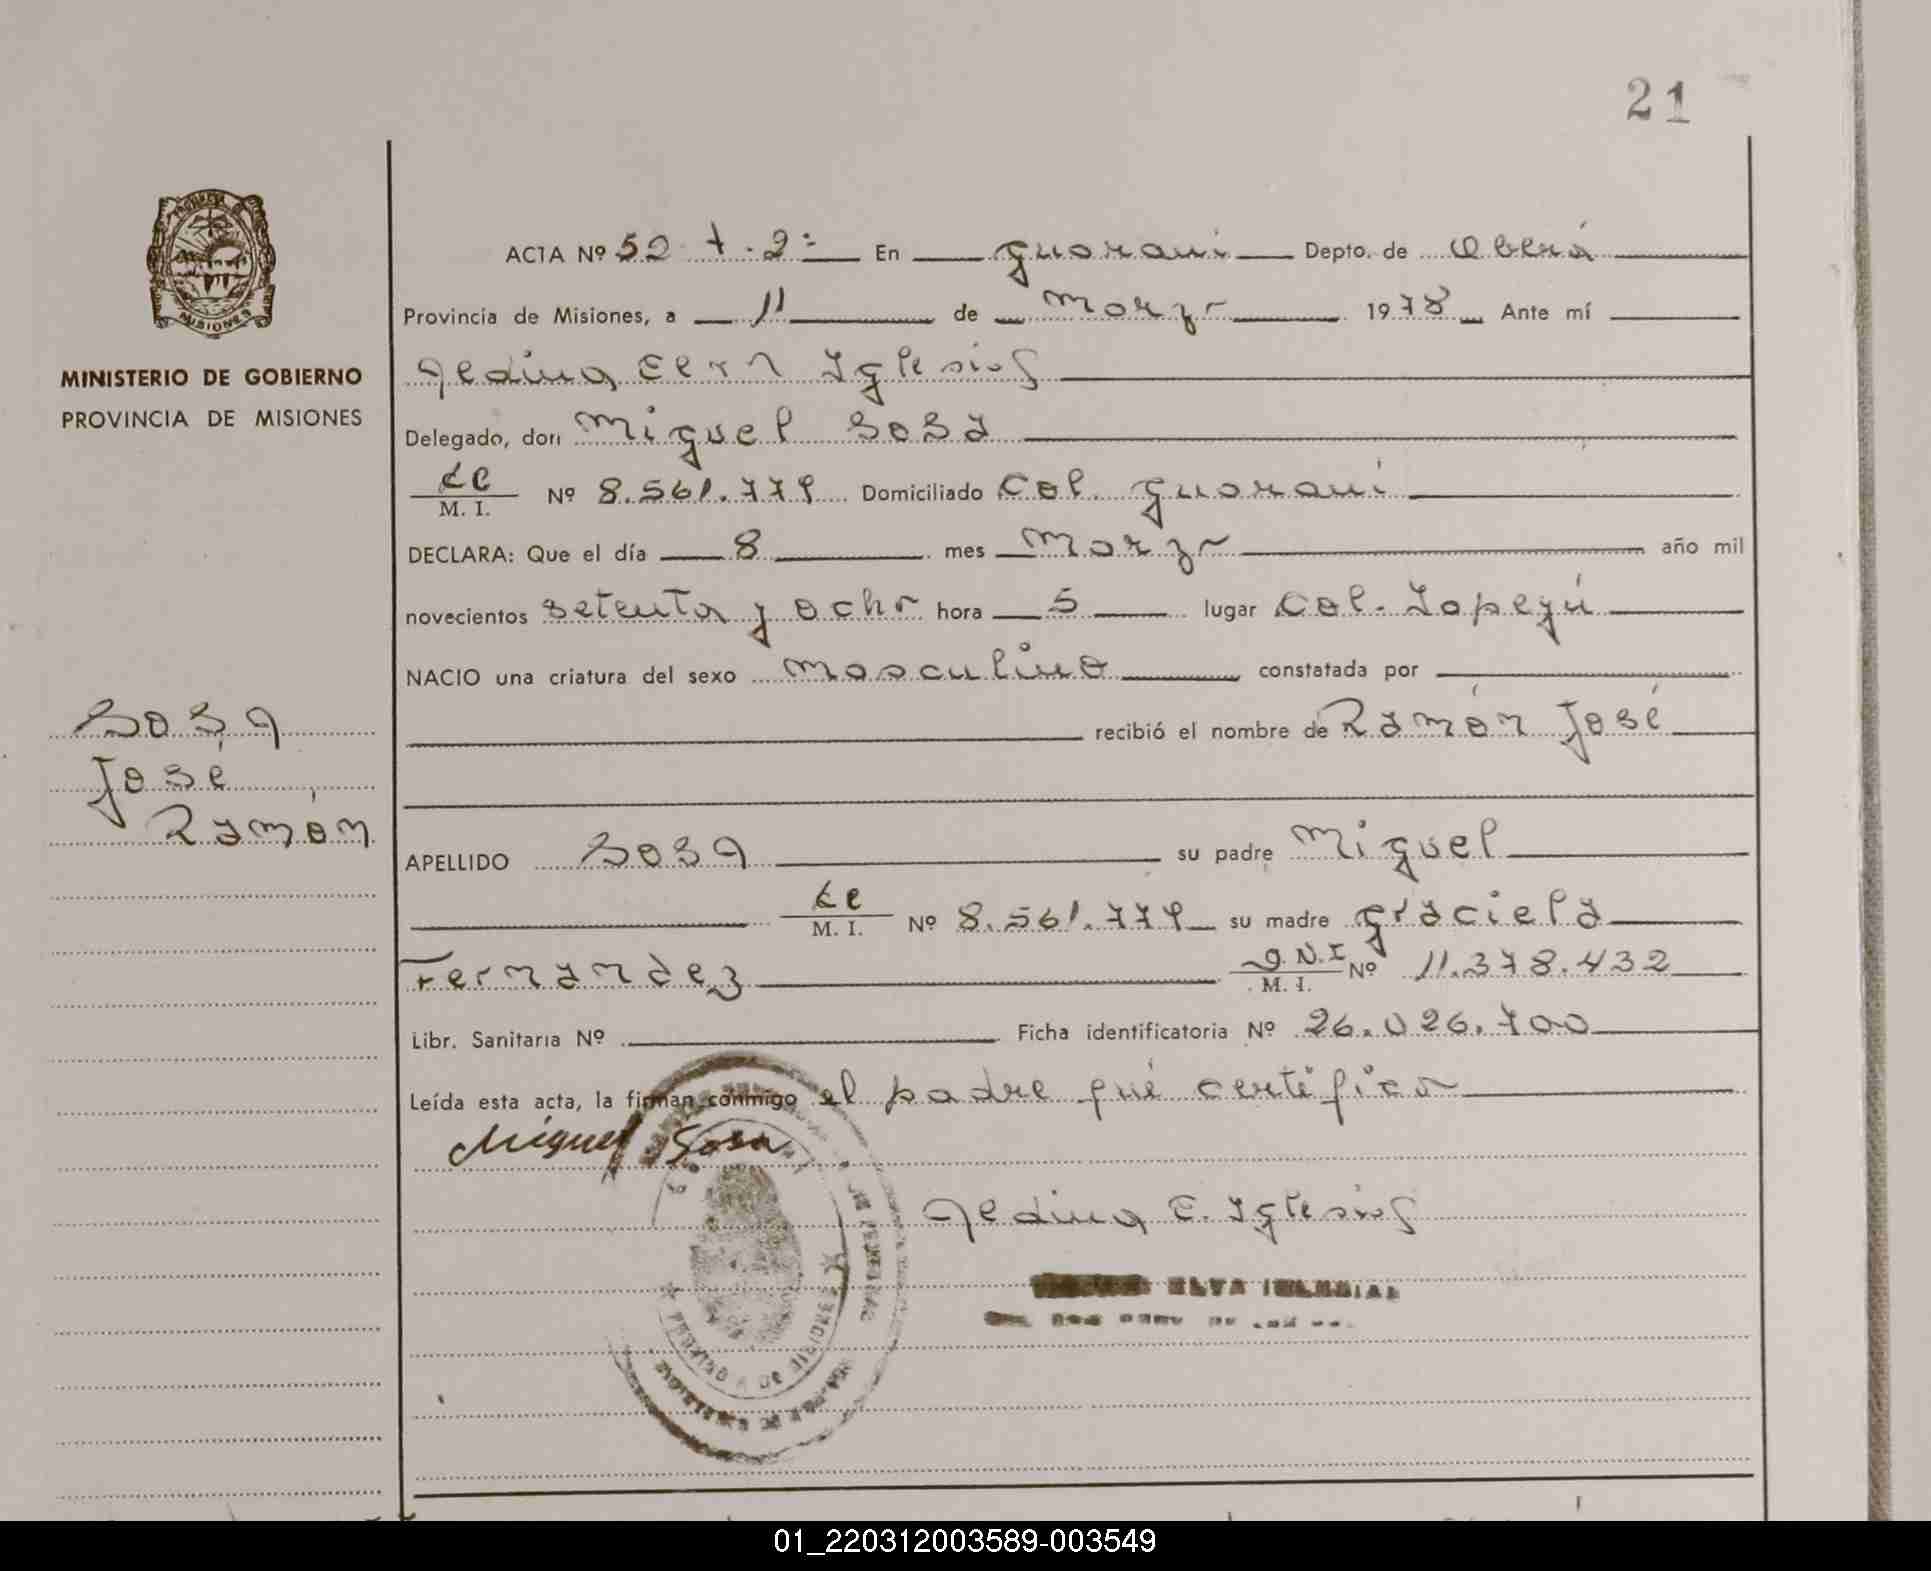 21
ACTA Nº 52 t. 2º En Guaraní Depto. de Oberá
Provincia de Misiones, a 11 de Marzo 1978 Ante mí
Iglesias
MINISTERIO DE GOBIERNO
PROVINCIA DE MISIONES
Delegado, don Miguel Sosa
LE M. I. Nº 8.561.779 Domiciliado Col. Guaraní
DECLARA: Que el día 8 mes Marzo año mil
novecientos setenta y ocho hora 5 lugar Col. Yapeyú
NACIO una criatura del sexo masculino constatada por
recibió el nombre de Ramón José
Sosa
José
Ramón
APELLIDO Sosa su padre Miguel
LE M. I. Nº 8.561.779 su madre Graciela
Fernandez D.N.I. M. I. Nº 11.378.432
Libr. Sanitaria Nº Ficha identificatoria Nº 26.026.700
Leída esta acta, la firman conmigo el padre qué certifico
Miguel Sosa
E. Iglesias
MISIONES
01_220312003589-003549